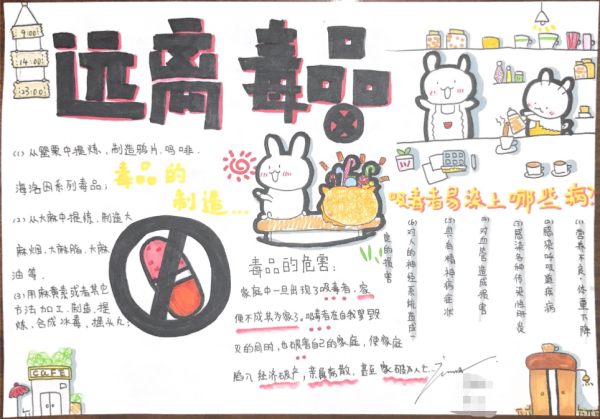 9:00
14:00
23:00
远离毒品
(1) 从罂粟中提炼、制造鸦片、吗啡、
海洛因系列毒品；
毒品的
制造...
(2) 从大麻中提炼、制造大
麻烟、大麻脂、大麻
油等、
(3) 用麻黄素或者其它
方法加工、制造、提
炼、合成冰毒、摇头丸；
CAFE
毒品的危害：
家庭中一旦出现了吸毒者，家
便不成其为家了。吸毒者在自我毁
灭的同时，也破害自己的家庭，使家庭
陷入经济破产，亲属离散，甚至家破人亡
吸毒者易染上哪些病?
(1) 营养不良：体重下降
(2) 感染呼吸道疾病
(3) 感染各种传染性肝炎
(4) 对血管造成损害
(5) 具有精神病症状
(6) 对人的神经系统造成
的损害